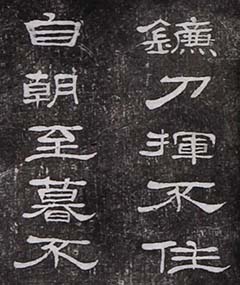 鐮刀揮不住
自朝至暮不